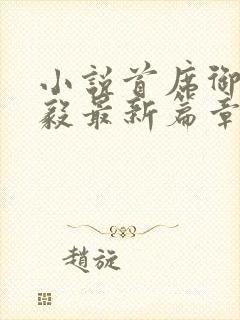 小說首席御
毅最新篇章
趙旋